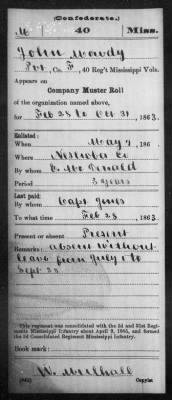 (Confederate.)
M 40 Miss.
John Mowdy
Pvt, Co. F, 40 Reg't Mississippi Vols.
Appears on
Company Muster Roll
of the organization named above,
for Feb 28 to Oct 31, 1863.
Enlisted:
When May 7, 186
Where Neshoba Co
By whom C. McDonald
Period 3 years
Last paid:
By whom Capt Jones
To what time Feb 28, 1863.
Present or absent Present
Remarks: absent without
leave from July 1 to
Sept 25
This regiment was consolidated with the 3d and 31st Regiments
Mississippi Infantry about April 9, 1865, and formed
the 3d Consolidated Regiment Mississippi Infantry.
Book mark:
W. Mulhall
(642) Copyist